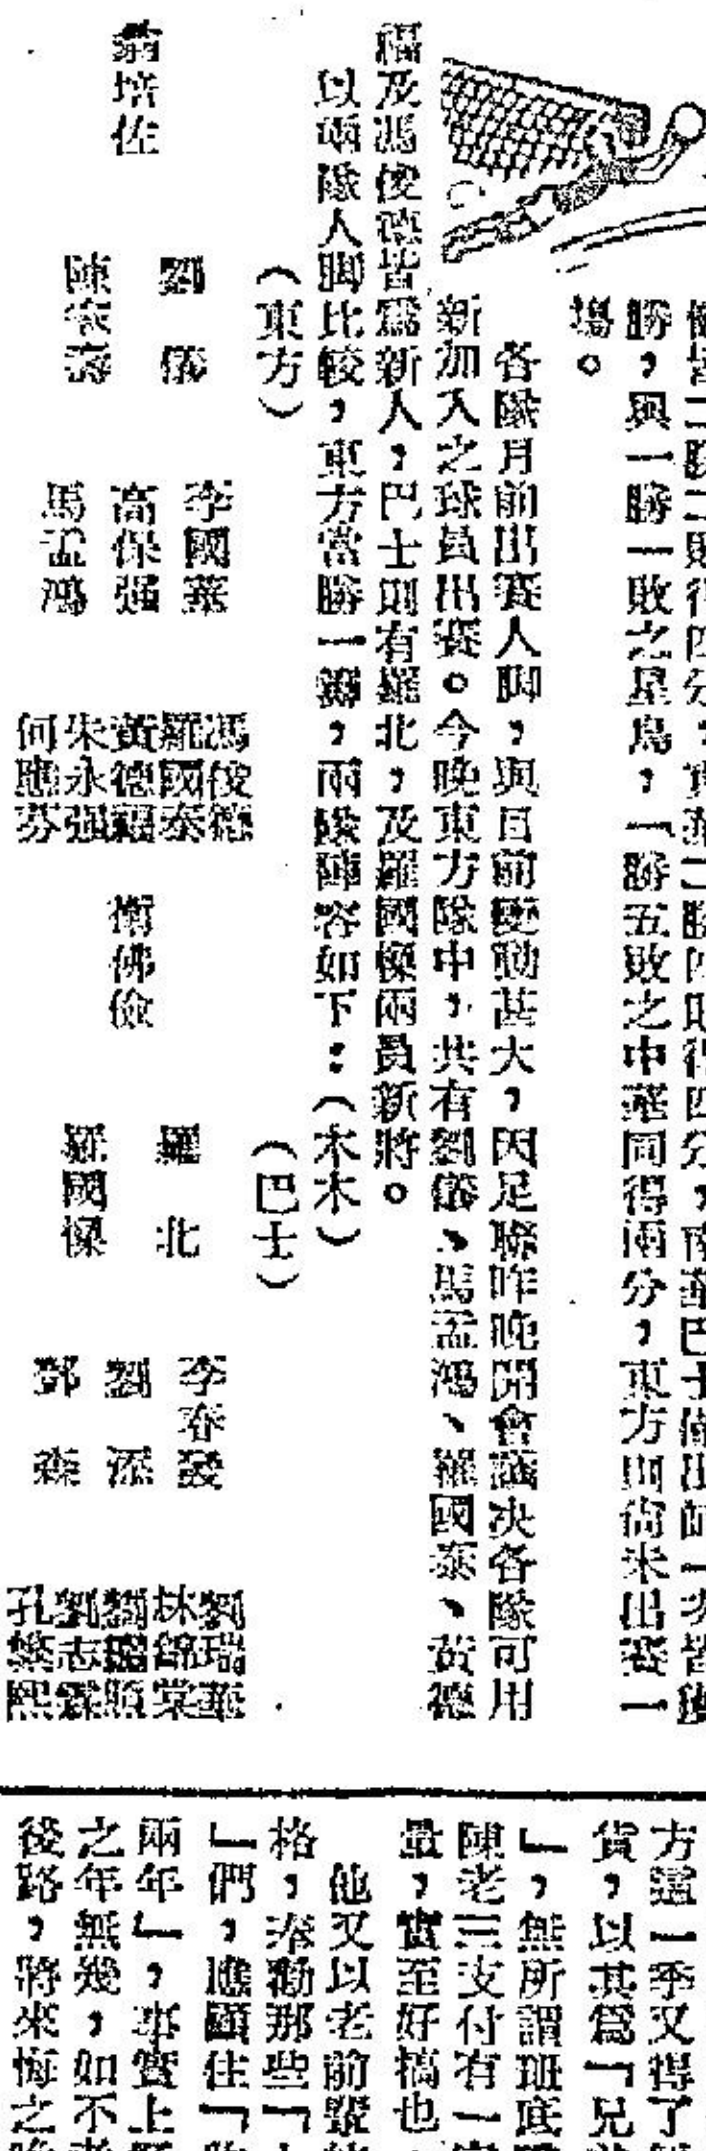 勝，與一勝一敗之星島，一勝五敗之中華同得兩分，東方則尚未出賽一
塲。
各隊月前出賽人脚，與目前變動甚大，因足聯昨晚開會議决各隊可用
新加入之球員出賽。今晚東方隊中，共有劉儀、馬孟鴻、羅國泰、黃德
福及馮俊德皆爲新人，巴士則有羅北，及羅國樑兩員新將。
以兩隊人脚比較，東方當勝一籌，兩隊陣容如下：（木木）
（東方）
翁培佐
劉儀
陳家壽
李國華
高保强
馬孟鴻
馮俊德
羅國泰
黃德福
朱永强
何應芬
（巴士）
衛佛儉
羅北
羅國樑
李春發
劉添
鄧森
劉瑞華
林錦棠
劉志霖
孔慶熙
方這一季又得了
貨，以其爲「兄
」，無所謂班底
陳老三支付有一
量，實至好搞也
他又以老前輩
格，奉勸那些「
」們，應顧住「
兩年」，事實上
之年無幾，如不
後路，將來悔之